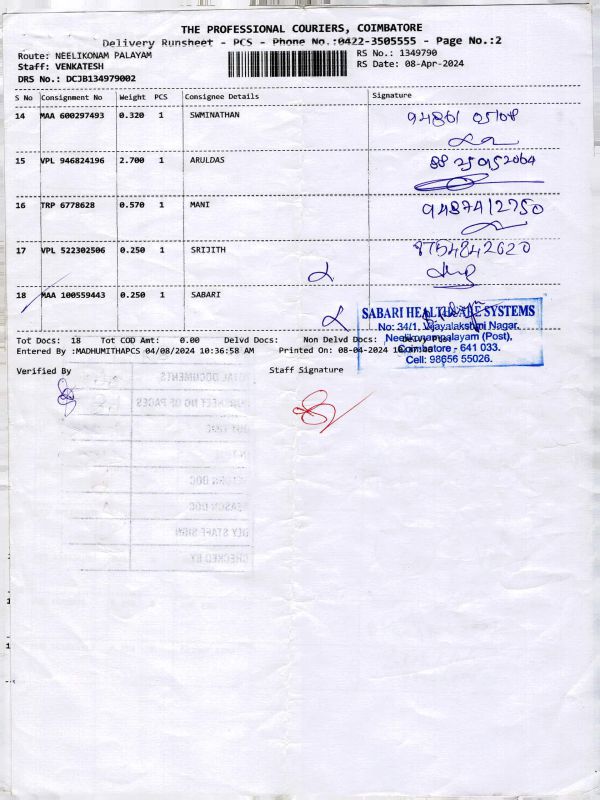 THE PROFESSIONAL COURIERS, COIMBATORE
Delivery Runsheet - PCS - Phone No.:0422-3505555 - Page No.:2
Route: NEELIKONAM PALAYAM RS No.: 1349790
Staff: VENKATESH RS Date: 08-Apr-2024
DRS No.: DCJB134979002
S No Consignment No Weight PCS Consignee Details Signature
14 MAA 600297493 0.320 1 SWMINATHAN 94861 05108
15 VPL 946824196 2.700 1 ARULDAS
16 TRP 6778628 0.570 1 MANI 9487412750
17 VPL 522302506 0.250 1 SRIJITH 8754842620
18 MAA 100559443 0.250 1 SABARI
SABARI HEALTHCARE SYSTEMS
No: 34/1, Vijayalakshmi Nagar,
Neelikonampalayam (Post),
Coimbatore - 641 033.
Cell: 98656 55026.
Tot Docs: 18 Tot COD Amt: 0.00 Delvd Docs: Non Delvd Docs:
Entered By :MADHUMITHAPCS 04/08/2024 10:36:58 AM Printed On: 08-04-2024
Verified By Staff Signature
TOTAL DOCUMENTS
NO OF PAGES
OUT TIME
RETURN DOC
REASON DOC
DLY STAFF SIGN
CHECKED BY